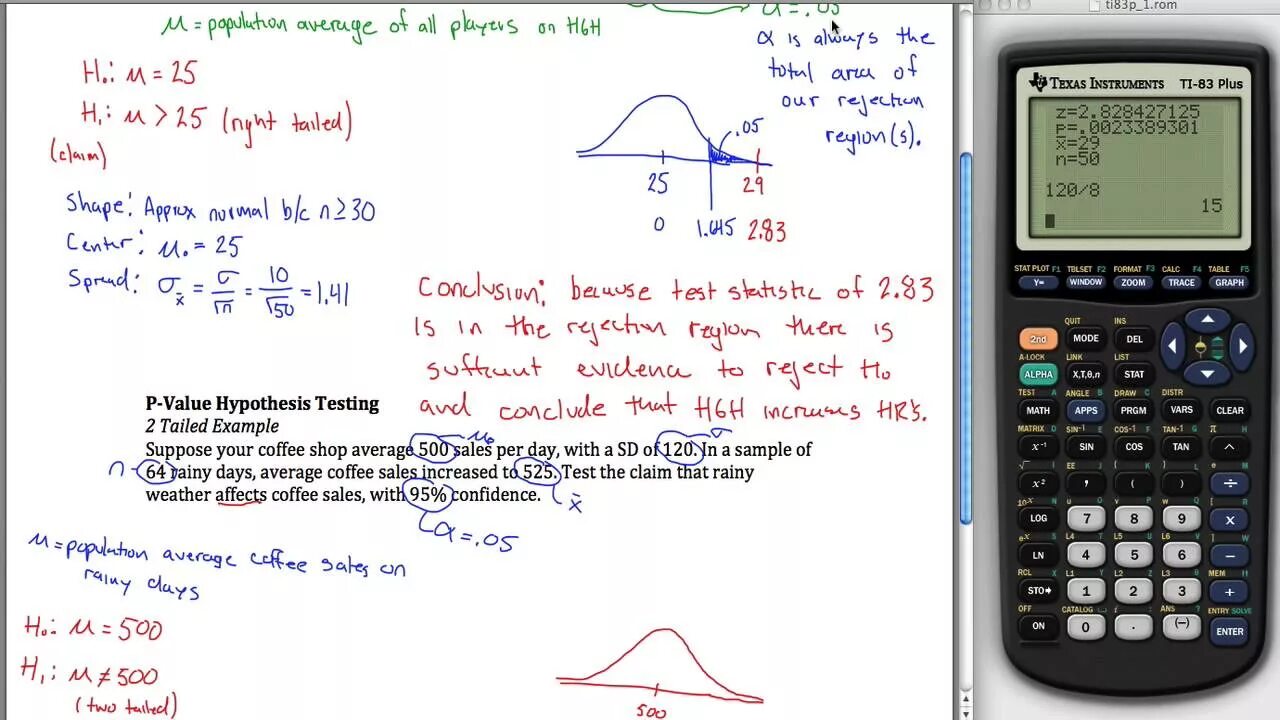 μ = population average of all players on HGH
α = .05
α is always the
total area of
our rejection
region(s).
H₀: μ = 25
H₁: μ > 25 (right tailed)
(claim)
.05
25
29
0
1.645
2.83
Shape: Approx normal b/c n ≥ 30
Center: μ₀ = 25
Spread: σx̄ = σ/√n = 10/√50 = 1.41
Conclusion: because test statistic of 2.83
is in the rejection region there is
suffucient evidence to reject H₀
and conclude that HGH increases HR's.
P-Value Hypothesis Testing
2 Tailed Example
μ₀
σ
Suppose your coffee shop average 500 sales per day, with a SD of 120. In a sample of
n
64 rainy days, average coffee sales increased to 525. Test the claim that rainy
weather affects coffee sales, with 95% confidence.
x̄
α = .05
μ = population average coffee sales on
rainy days
H₀: μ = 500
H₁: μ ≠ 500
(two tailed)
500
ti83p_1.rom
TEXAS INSTRUMENTS TI-83 Plus
z=2.828427125
p=.0023389301
x̄=29
n=50
120/8
15
STAT PLOT F1 TBLSET F2 FORMAT F3 CALC F4 TABLE F5
Y= WINDOW ZOOM TRACE GRAPH
QUIT INS
2nd MODE DEL
A-LOCK LINK LIST
ALPHA X,T,θ,n STAT
TEST A ANGLE B DRAW C DISTR
MATH APPS PRGM VARS CLEAR
MATRIX D SIN⁻¹ E COS⁻¹ F TAN⁻¹ G π H
x⁻¹ SIN COS TAN ^
√ I EE J { K } L e M
x² , ( ) ÷
10ˣ N u O v P w Q [ R
LOG 7 8 9 x
eˣ S L4 T L5 U L6 V ] W
LN 4 5 6 −
RCL X L1 Y L2 Z L3 θ MEM "
STO▸ 1 2 3 +
OFF CATALOG i : ANS ? ENTRY SOLVE
ON 0 . (−) ENTER